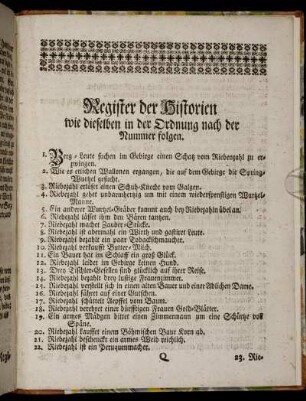 Register der Historien
wie dieselben in der Ordnung nach der
Nummer folgen.
1. Berg-Leute suchen im Gebirge einen Schatz vom Riebezahl zu er-
zwingen.
2. Wie es etlichen Wallonen ergangen, die auf dem Gebirge die Spring-
Wurtzel gesucht.
3. Riebezahl erlöset einen Schuh-Knecht vom Galgen.
4. Riebezahl fähret unbarmhertzig um mit einem wiederspenstigen Wurtzel-
Manne.
5. Ein anderer Wurtzel-Gräber kommt auch bey Riebezahln übel an.
6. Riebezahl lässet ihm den Bären tantzen.
7. Riebezahl machet Zauber-Stücke.
8. Riebezahl ist abermahl ein Wirth und gastiret Leute.
9. Riebezahl bezahlt ein paar Tobackschmaucher.
10. Riebezahl verkaufft Butter-Milch.
11. Ein Bauer hat im Schlaff ein groß Glück.
12. Riebezahl leidet im Gebirge keinen Hund.
13. Drey Tischler-Gesellen sind glücklich auf ihrer Reise.
14. Riebezahl begabt drey lustige Frauenzimmer.
15. Riebezahl verstellt sich in einen alten Bauer und einer Adlichen Dame.
16. Riebezahl fähret auf einer Gutschen.
17. Riebezahl schüttelt Aepffel vom Baum.
18. Riebezahl verehret einer dürfftigen Frauen Gold-Blätter.
19. Ein armes Mädgen bittet einen Zimmermann um eine Schürtze voll
Späne.
20. Riebezahl kauffet einem Böhmischen Baur Korn ab.
21. Riebezahl beschenckt ein armes Weib reichlich.
22. Riebezahl ist ein Peruquenmacher.
Q
23. Rie-